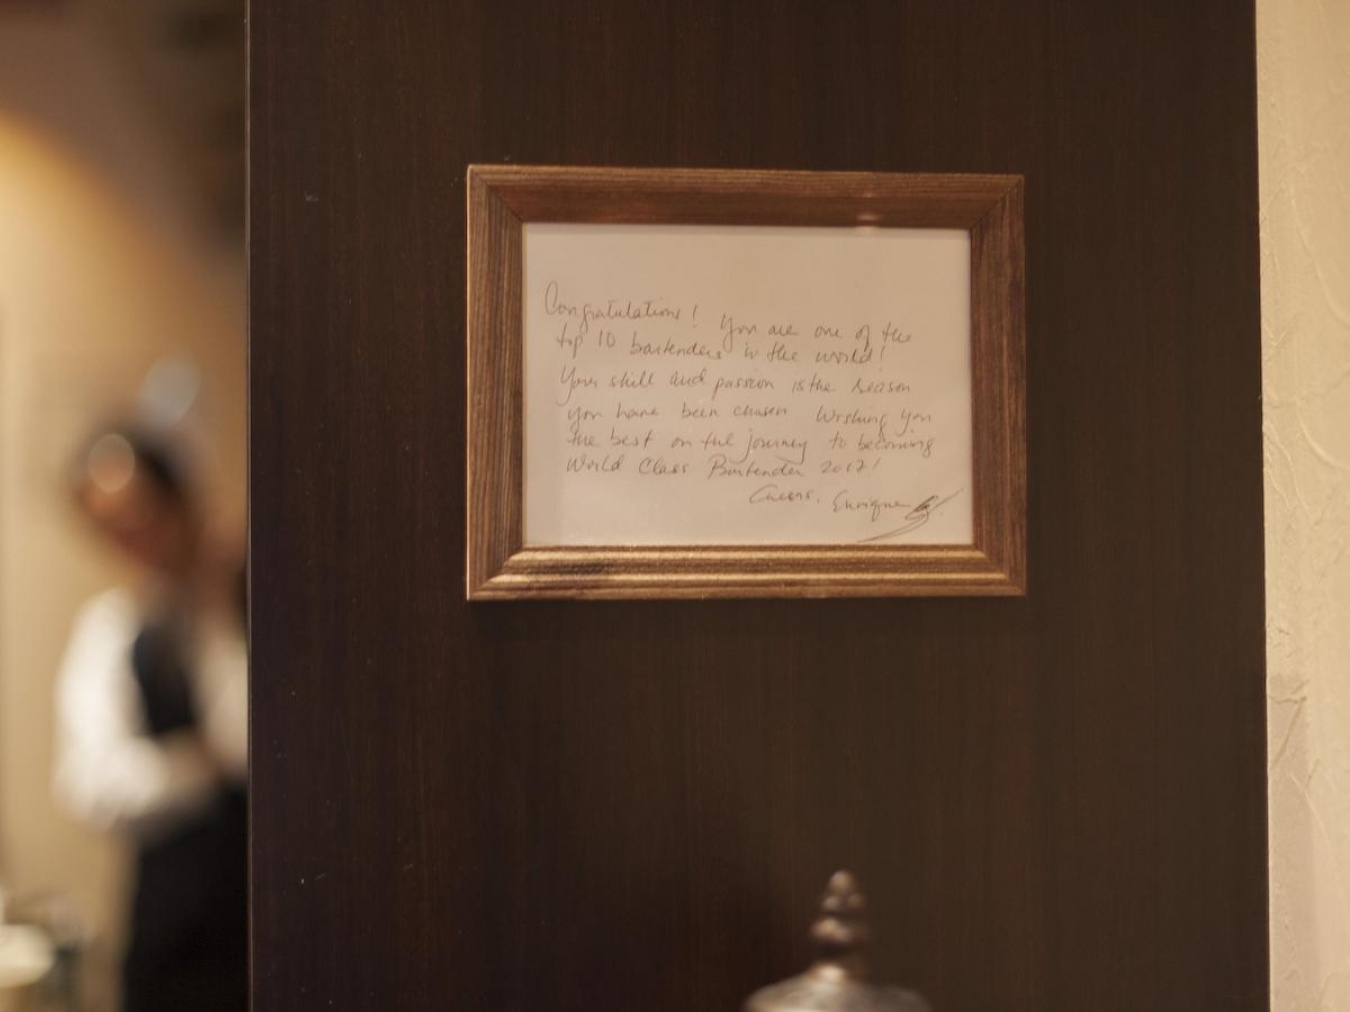 Congratulations! You are one of the
top 10 bartenders in the world!
Your skill and passion is the reason
you have been chosen Wishing you
the best on the journey to becoming
World Class Bartender 2012!
Cheers, Enrique